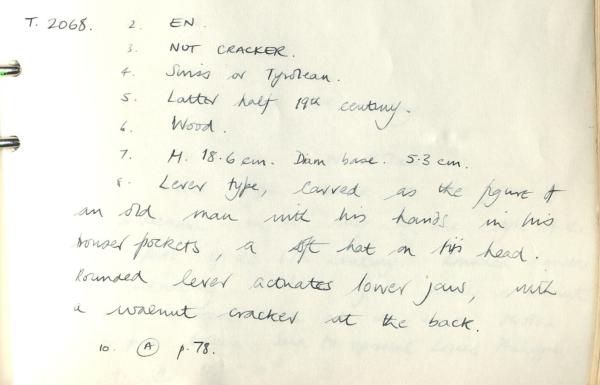 T. 2068. 2. EN.
3. NUT CRACKER.
4. Swiss or Tyrolean.
5. Latter half 19th century.
6. Wood.
7. H. 18.6 cm. Diam base. 5.3 cm.
8. Lever type, carved as the figure of
an old man with his hands in his
trouser pockets, a soft hat on his head.
Rounded lever actuates lower jaw, with
a walnut cracker at the back.
10. A p. 78.